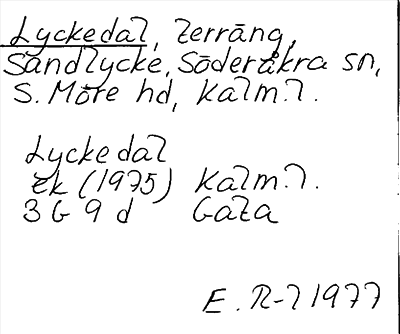 Lyckedal, Terräng,
Sandlycke, Söderåkra sn,
S. Möre hd, Kalm. l.
Lyckedal
ek (1975) Kalm. l.
3 G 9 d Gata
E. R-l 1977